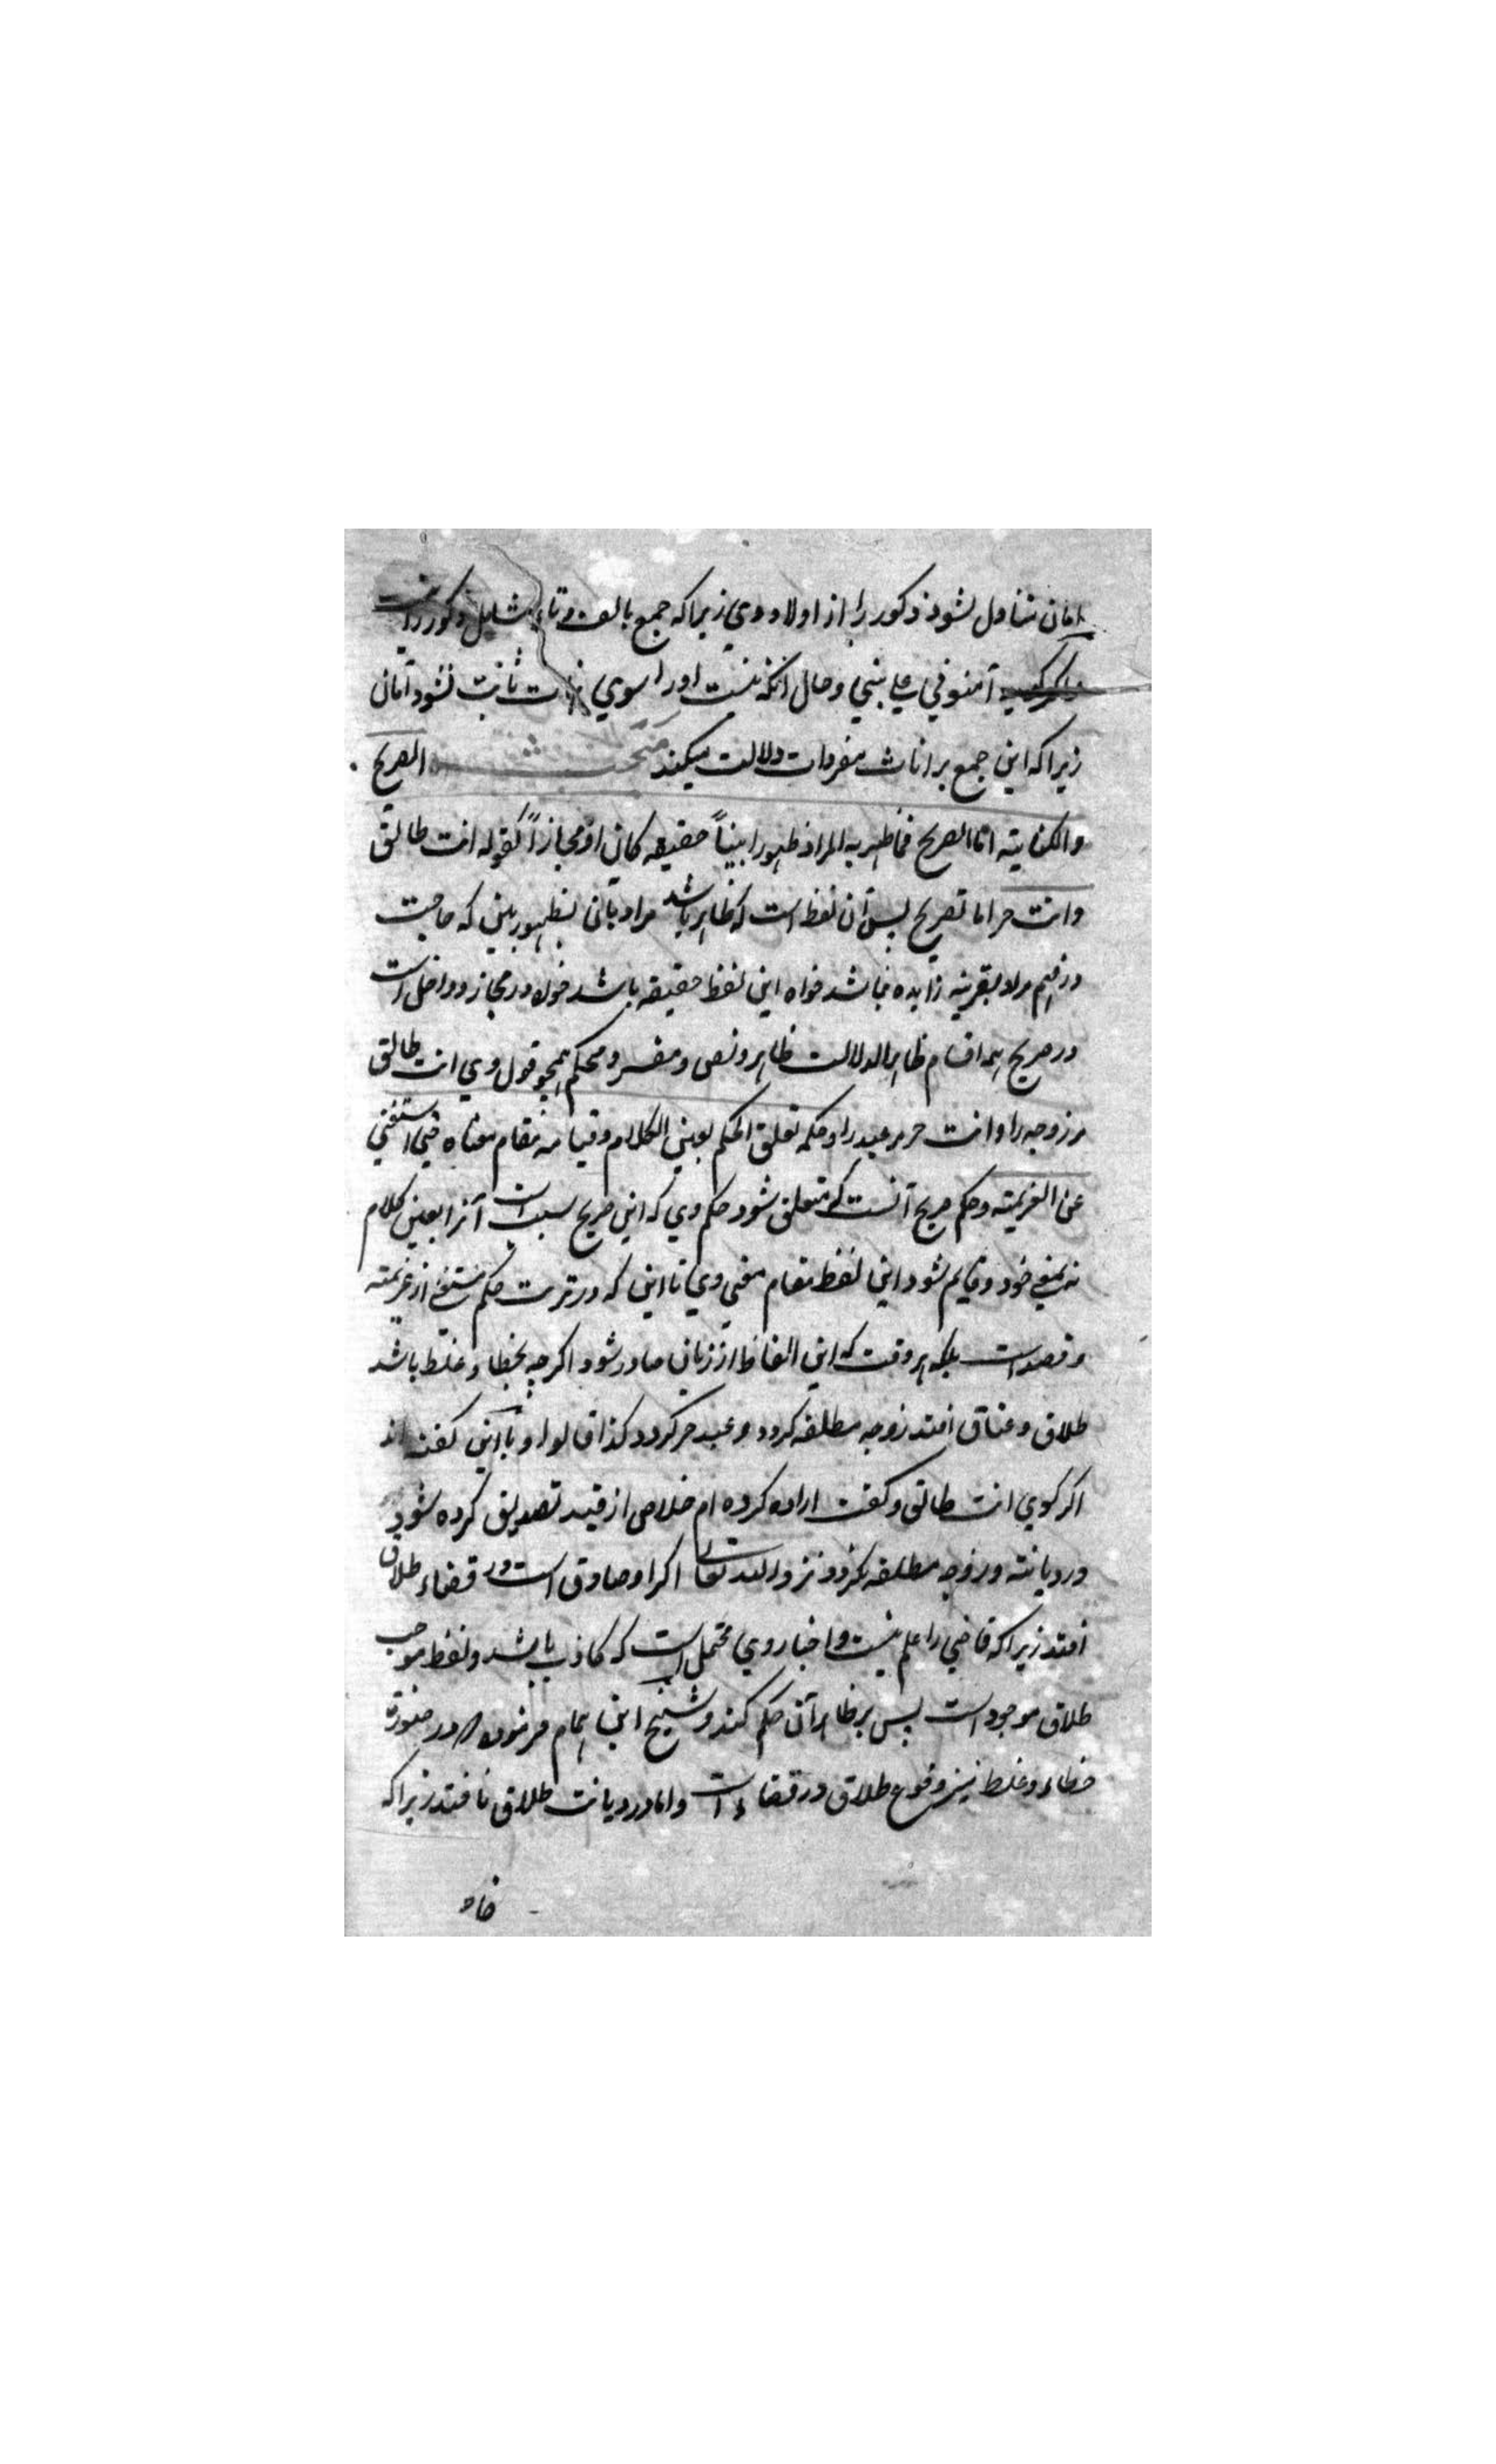 امان متناول نشود ذکور را از اولاد وی زیرا که جمع بالف و تاء شامل ذکور را نیست
آمنونی علی بنتی و حال آنکه نیست اورا سوی ثابت نشود امان
زیرا که این جمع بر اناث مفردات دلالت میکند الصریح
والکنایته اما الصریح فما ظهر به المراد ظهورا بیناً حقیقه کان او مجازاً کقوله انت طالق
وانت حر اما تصریح پس آن لفظ است که ظاهر باشد مراد بآن بظهور بین که حاجت
در فهم مراد بقرینه زایده نباشد خواه این لفظ حقیقه باشد خواه در مجاز و داخل است
در صریح همه اقسام ظاهر الدلالت ظاهر و نص و مفسر و محکم همچو قول وی انت طالق
مر زوجه را وانت حر مر عبد را و حکمه تعلق الحکم بعین الکلام و قیامه مقام معناه حتی استغنی
عن العزیمته و حکم صریح آنست که متعلق شود حکم وی که این صریح سبب است آنرا بعین کلام
نه بمعنی خود و قایم شود این لفظ مقام معنی وی تا این که در ترتب حکم مستغنی از عزیمته
و قصد است بلکه هر وقت که این الفاظ از زبان صادر شود اگرچه بخطاء و غلط باشد
طلاق و عتاق افتد زوجه مطلقه گردد و عبد حر گردد کذا قالوا و با این گفته اند
اگر گوی انت طالق و گفت اراده کرده ام خلاصی از قید تصدیق کرده شود
در دیانته و زوجه مطلقه نگردد نزد الله تعالی اگر او صادق است و در قضاء طلاق
افتد زیرا که قاضی را علم نیست و اخبار وی محتمل است که کاذب باشد و لفظ موجب
طلاق موجود است پس بر ظاهر آن حکم کند و شیخ ابن همام فرموده در صورة
خطاء و غلط نیز وقوع طلاق در قضاء است و اما در دیانت طلاق نافتد زیرا که